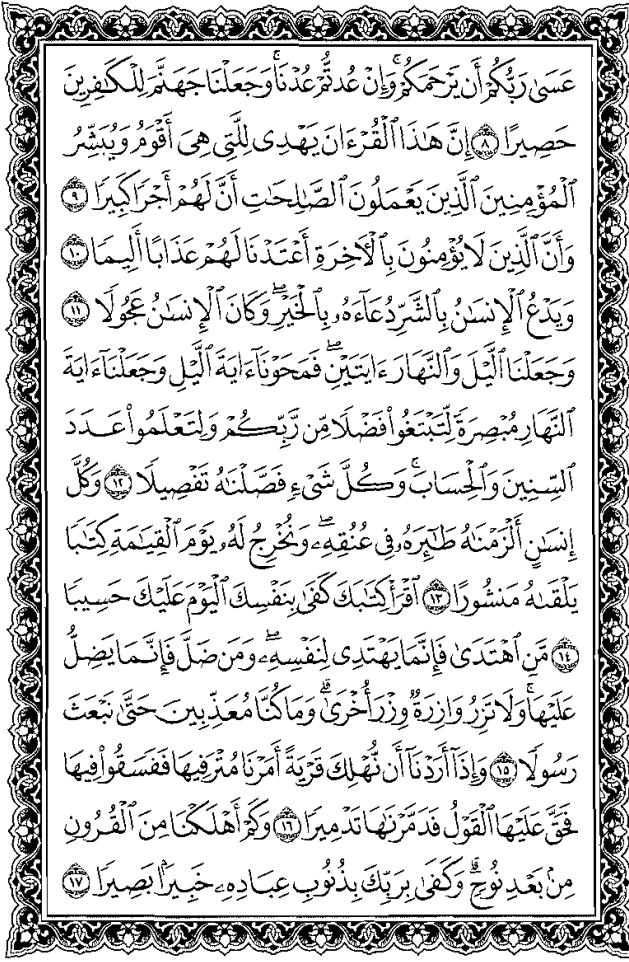 عَسَىٰ رَبُّكُمْ أَن يَرْحَمَكُمْ ۚ وَإِنْ عُدتُّمْ عُدْنَا ۘ وَجَعَلْنَا جَهَنَّمَ لِلْكَٰفِرِينَ
حَصِيرًا ۝٨ إِنَّ هَٰذَا ٱلْقُرْءَانَ يَهْدِى لِلَّتِى هِىَ أَقْوَمُ وَيُبَشِّرُ
ٱلْمُؤْمِنِينَ ٱلَّذِينَ يَعْمَلُونَ ٱلصَّٰلِحَٰتِ أَنَّ لَهُمْ أَجْرًا كَبِيرًا ۝٩
وَأَنَّ ٱلَّذِينَ لَا يُؤْمِنُونَ بِٱلْءَاخِرَةِ أَعْتَدْنَا لَهُمْ عَذَابًا أَلِيمًا ۝١٠
وَيَدْعُ ٱلْإِنسَٰنُ بِٱلشَّرِّ دُعَآءَهُۥ بِٱلْخَيْرِ ۖ وَكَانَ ٱلْإِنسَٰنُ عَجُولًا ۝١١
وَجَعَلْنَا ٱلَّيْلَ وَٱلنَّهَارَ ءَايَتَيْنِ ۖ فَمَحَوْنَآ ءَايَةَ ٱلَّيْلِ وَجَعَلْنَآ ءَايَةَ
ٱلنَّهَارِ مُبْصِرَةً لِّتَبْتَغُوا۟ فَضْلًا مِّن رَّبِّكُمْ وَلِتَعْلَمُوا۟ عَدَدَ
ٱلسِّنِينَ وَٱلْحِسَابَ ۚ وَكُلَّ شَىْءٍ فَصَّلْنَٰهُ تَفْصِيلًا ۝١٢ وَكُلَّ
إِنسَٰنٍ أَلْزَمْنَٰهُ طَٰٓئِرَهُۥ فِى عُنُقِهِۦ ۖ وَنُخْرِجُ لَهُۥ يَوْمَ ٱلْقِيَٰمَةِ كِتَٰبًا
يَلْقَىٰهُ مَنشُورًا ۝١٣ ٱقْرَأْ كِتَٰبَكَ كَفَىٰ بِنَفْسِكَ ٱلْيَوْمَ عَلَيْكَ حَسِيبًا
۝١٤ مَّنِ ٱهْتَدَىٰ فَإِنَّمَا يَهْتَدِى لِنَفْسِهِۦ ۖ وَمَن ضَلَّ فَإِنَّمَا يَضِلُّ
عَلَيْهَا ۚ وَلَا تَزِرُ وَازِرَةٌ وِزْرَ أُخْرَىٰ ۗ وَمَا كُنَّا مُعَذِّبِينَ حَتَّىٰ نَبْعَثَ
رَسُولًا ۝١٥ وَإِذَآ أَرَدْنَآ أَن نُّهْلِكَ قَرْيَةً أَمَرْنَا مُتْرَفِيهَا فَفَسَقُوا۟ فِيهَا
فَحَقَّ عَلَيْهَا ٱلْقَوْلُ فَدَمَّرْنَٰهَا تَدْمِيرًا ۝١٦ وَكَمْ أَهْلَكْنَا مِنَ ٱلْقُرُونِ
مِنۢ بَعْدِ نُوحٍ ۗ وَكَفَىٰ بِرَبِّكَ بِذُنُوبِ عِبَادِهِۦ خَبِيرًۢا بَصِيرًا ۝١٧